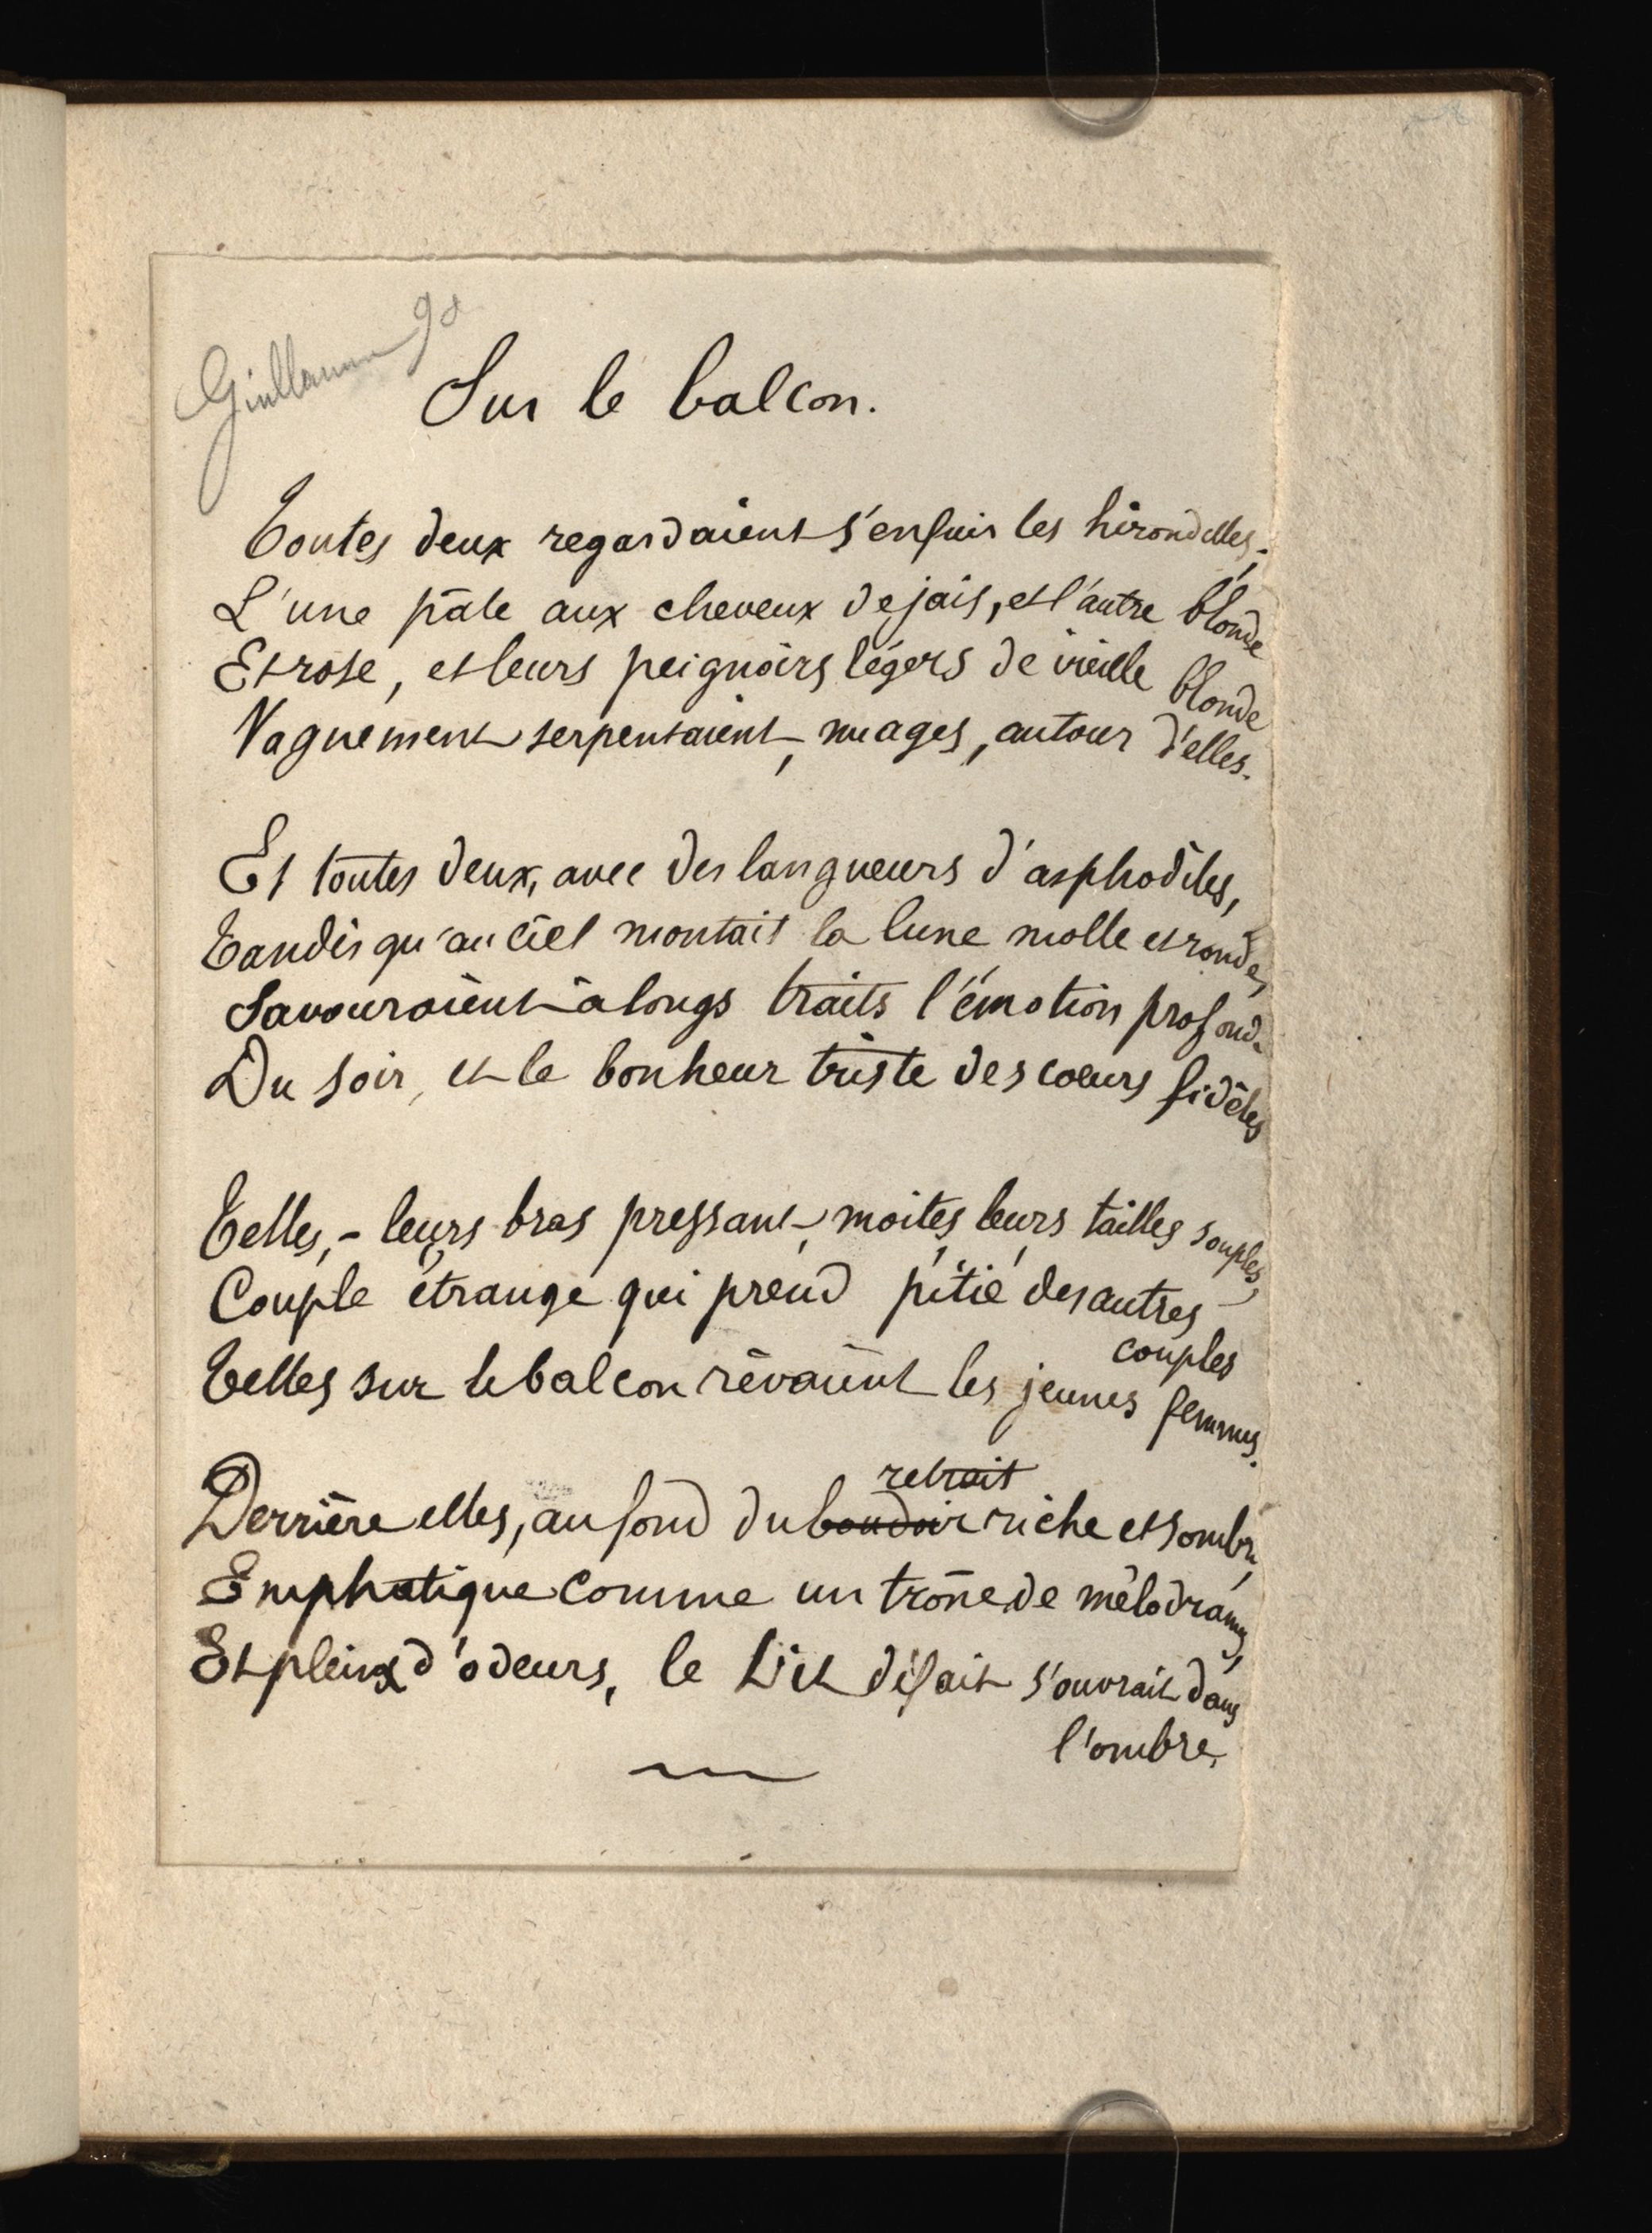 Guillaume
Sur le balcon.
Toutes deux regardaient s'enfuir les hirondelles;
L'une pâle aux cheveux de jais, et l'autre blonde
Et rose, et leurs peignoirs légers de vieille blonde
Vaguement serpentaient, nuages, autour d'elles.
Et toutes deux, avec des langueurs d'asphodèles,
Tandis qu'au ciel montait la lune molle et ronde,
Savouraient à longs traits l'émotion profonde
Du soir, et le bonheur triste des cœurs fidèles
Telles, - leurs bras pressant, moites, leurs tailles souples,
Couple étrange qui prend pitié des autres
couples -
Telles sur le balcon rêvaient les jeunes femmes.
retrait
Derrière elles, au fond du boudoir riche et sombre,
Emphatique comme un trône de mélodrames,
Et plein d'odeurs, le Lit défait s'ouvrait dans
l'ombre.